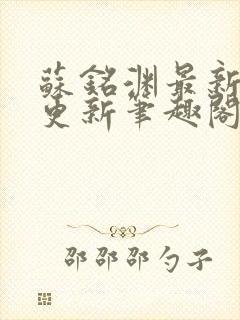 蘇銘淵最新
更新筆趣閣
邵邵邵勺子